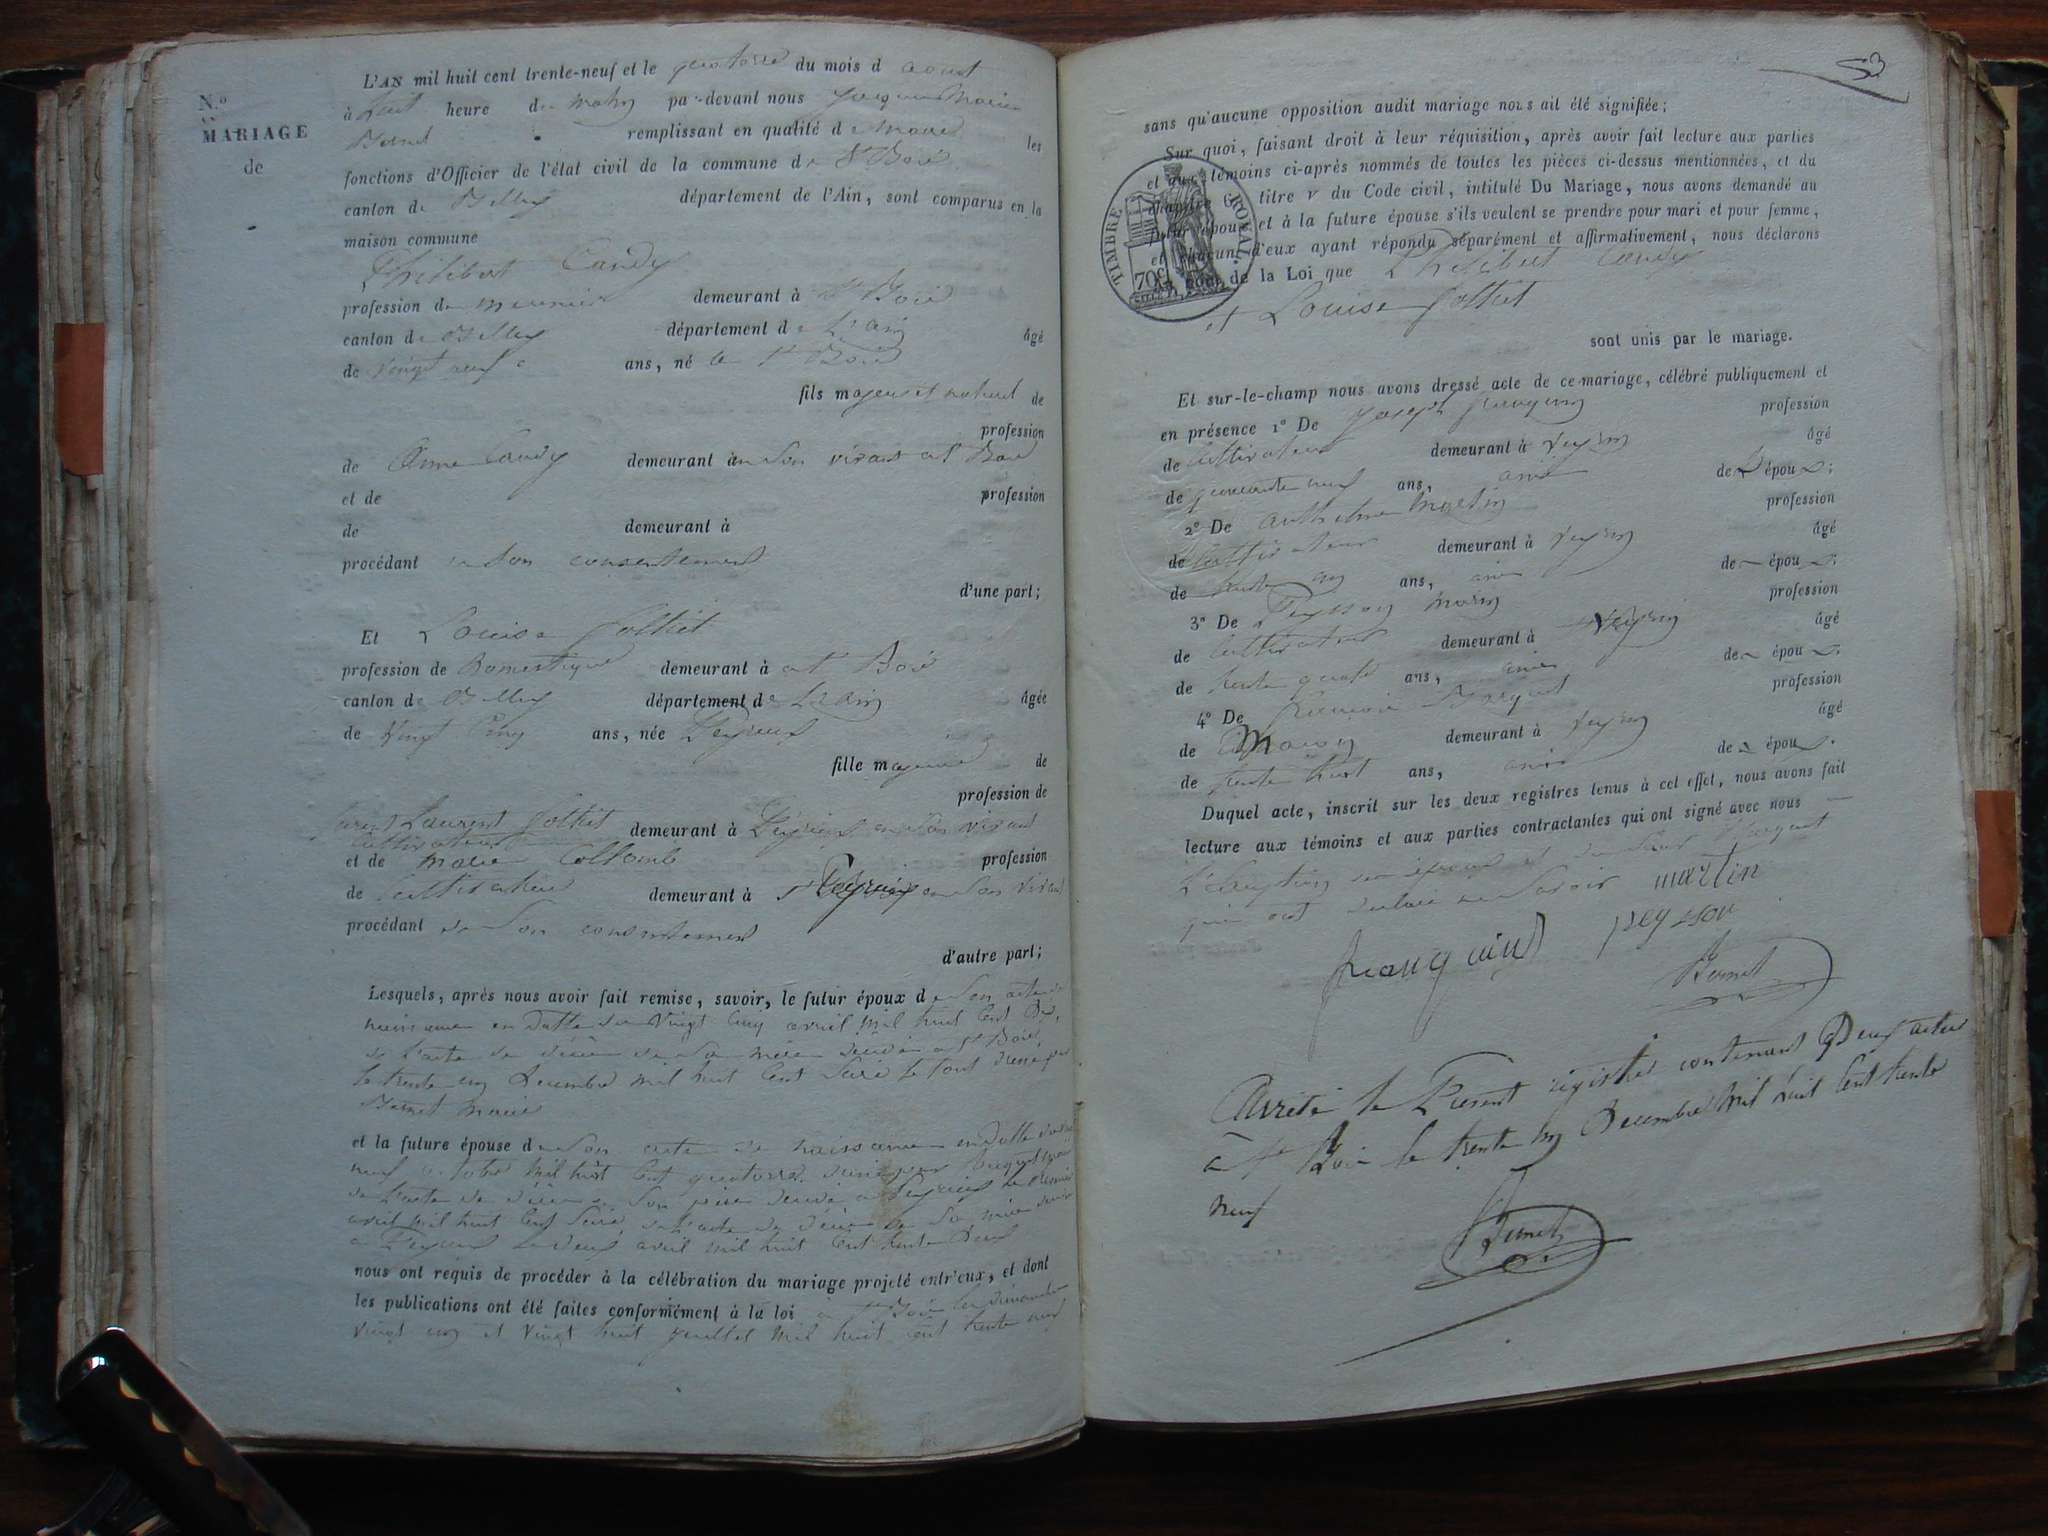 L'AN mil huit cent trente-neuf et le quatorze du mois d aout
N.o
MARIAGE
de
à huit heure de matin par-devant nous Jacques Marie
Bornet remplissant en qualité de Maire les
fonctions d'Officier de l'état civil de la commune de St Boié
canton de Belley département de l'Ain, sont comparus en la
maison commune
Philibert Caudy
profession de meunier demeurant à St Boié
canton de Belley département de L'ain âgé
de vingt neuf ans, né le St Boié
fils majeur et naturel de
profession
de Anne Caudy demeurant à en son vivant St Boié
et de profession
de demeurant à
procédant de son consentement
d'une part;
Et Louise Jolliet
profession de Domestique demeurant à St Boié
canton de Belley département de L'ain âgée
de vingt cinq ans, née Peyrieu
fille majeure de
profession de
Laurent Jolliet demeurant à Peyrieu en son vivant
cultivateur
et de marie Collomb profession
de cultivateur demeurant à Peyrieu en son vivant
procédant de son consentement
d'autre part;
Lesquels, après nous avoir fait remise, savoir, le futur époux de son acte de
naissance en datte du vingt cinq avril mil huit cent dix,
de l'acte de décès de sa mère décédée a St Boié,
le trente un Decembre mil huit cent seize le tout signé par
Bornet maire
et la future épouse de son acte de naissance en datte du
neuf octobre mil huit cent quatorze
de l'acte de décès de son père décédé a Peyrieu le
avril mil huit cent seize, de l'acte de décès de sa mère
a Peyrieu le deux avril mil huit cent trente deux
nous ont requis de procéder à la célébration du mariage projeté entr'eux, et dont
les publications ont été faites conformément à la loi à St Boié les dimanches
vingt un et vingt huit juillet mil huit cent trente neuf
53
sans qu'aucune opposition audit mariage nous ait été signifiée;
Sur quoi, faisant droit à leur réquisition, après avoir fait lecture aux parties
et aux témoins ci-après nommés de toutes les pièces ci-dessus mentionnées, et du
chapitre 6 titre v du Code civil, intitulé Du Mariage, nous avons demandé au
futur époux et à la future épouse s'ils veulent se prendre pour mari et pour femme,
et chacun d'eux ayant répondu séparément et affirmativement, nous déclarons
au nom de la Loi que Philibert Caudy
TIMBRE ROYAL.
70c
et Louise Jolliet
sont unis par le mariage.
Et sur-le-champ nous avons dressé acte de ce mariage, célébré publiquement et
en présence 1º De Joseph profession
de cultivateur demeurant à Veyrin âgé
de quarante neuf ans, ami de L épou
2º De anthelme Martin profession
de cultivateur demeurant à Veyrin âgé
de trente ans, ami de épou
3º De Peysson profession
de cultivateur demeurant à Veyrin âgé
de trente quatre ans, ami de épou
4º De François profession
de Maçon demeurant à Veyrin âgé
de trente huit ans, ami de épou
Duquel acte, inscrit sur les deux registres tenus à cet effet, nous avons fait
lecture aux témoins et aux parties contractantes qui ont signé avec nous
L'exception des époux et du
qui ont déclaré ne savoir martin
peysson
Bornet
Arrêté le Present registre contenant Deux actes
à St Boié le trente un Decembre mil huit cent trente
neuf
Bornet